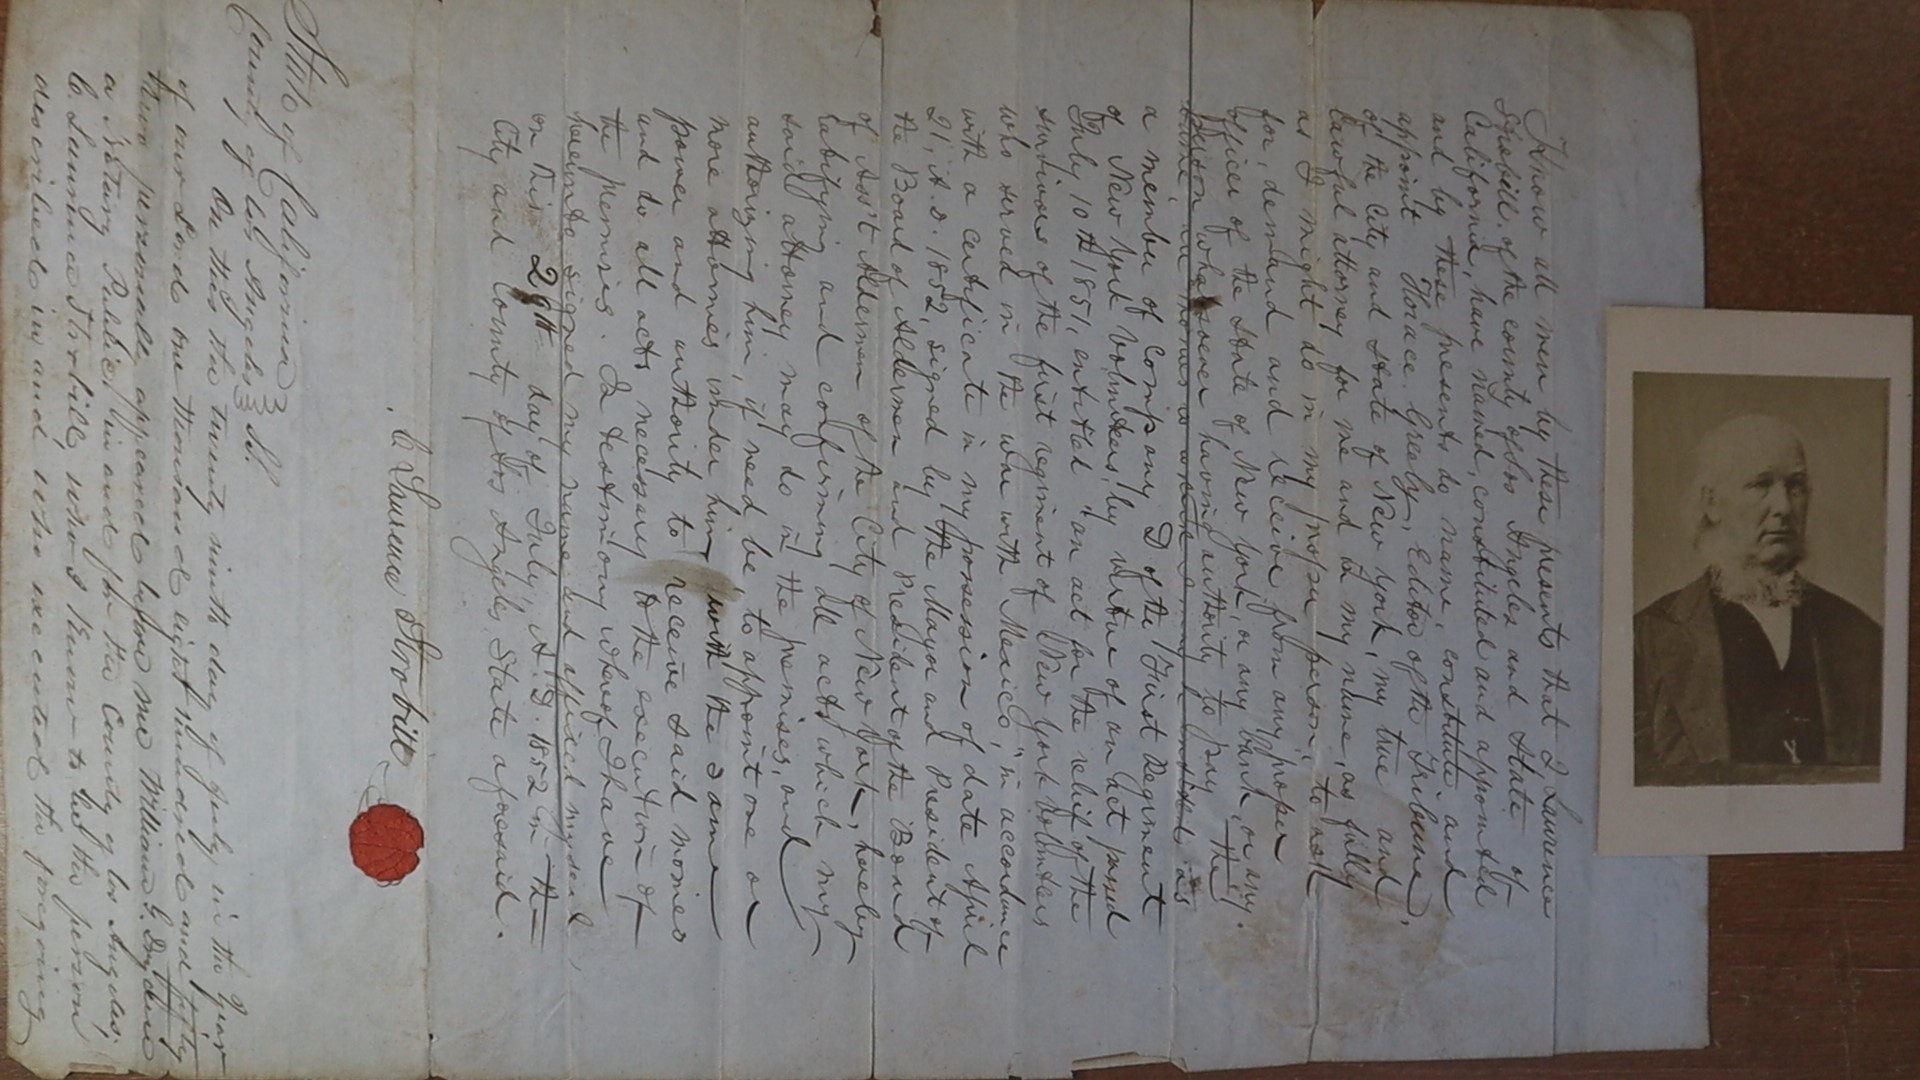 Know all men by these presents that I Laurence
Strobill, of the county of Los Angeles and State of
California, have named, constituted and appointed
and by these presents do name, constitute and
appoint Horace Greely, Editor of the Tribune,
of the City and State of New York, my true and
lawful attorney for me and in my name, as fully
as I might do in my proper person, to ask
for, demand and receive from any proper
officer of the State of New York, or any bank or any
person whatsoever having authority to pay the
a member of Company D of the First Regiment
of New York Volunteers, by virtue of an Act passed
July 10th 1851, entitled "an act for the relief of the
survivors of the first regiment of New York Volunteers
who served in the war with Mexico," in accordance
with a certificate in my possession of date April
21, A.D. 1852, signed by the Mayor and President of
the Board of Aldermen and President of the Board
of Asst Aldermen of the City of New York, hereby
ratifying and confirming all acts which my
said attorney may do in the premises, and
authorizing him, if need be, to appoint one or
more attornies under him with the same
power and authority to receive said monies
and do all acts necessary to the execution of
the premises. In testimony whereof I have
hereunto signed my name and affixed my seal,
on this 29th day of July, A.D. 1852 in the
City and County of Los Angeles, State aforesaid.
Laurence Strobill
State of California
County of Los Angeles } SS.
On this the twenty ninth day of July in the Year
of our Lord one thousand eight hundred and fifty
two personally appeared before me William G. Dryden
a Notary Public in and for the County of Los Angeles,
Laurence Strobill, who I know to be the person
described in and who executed the foregoing